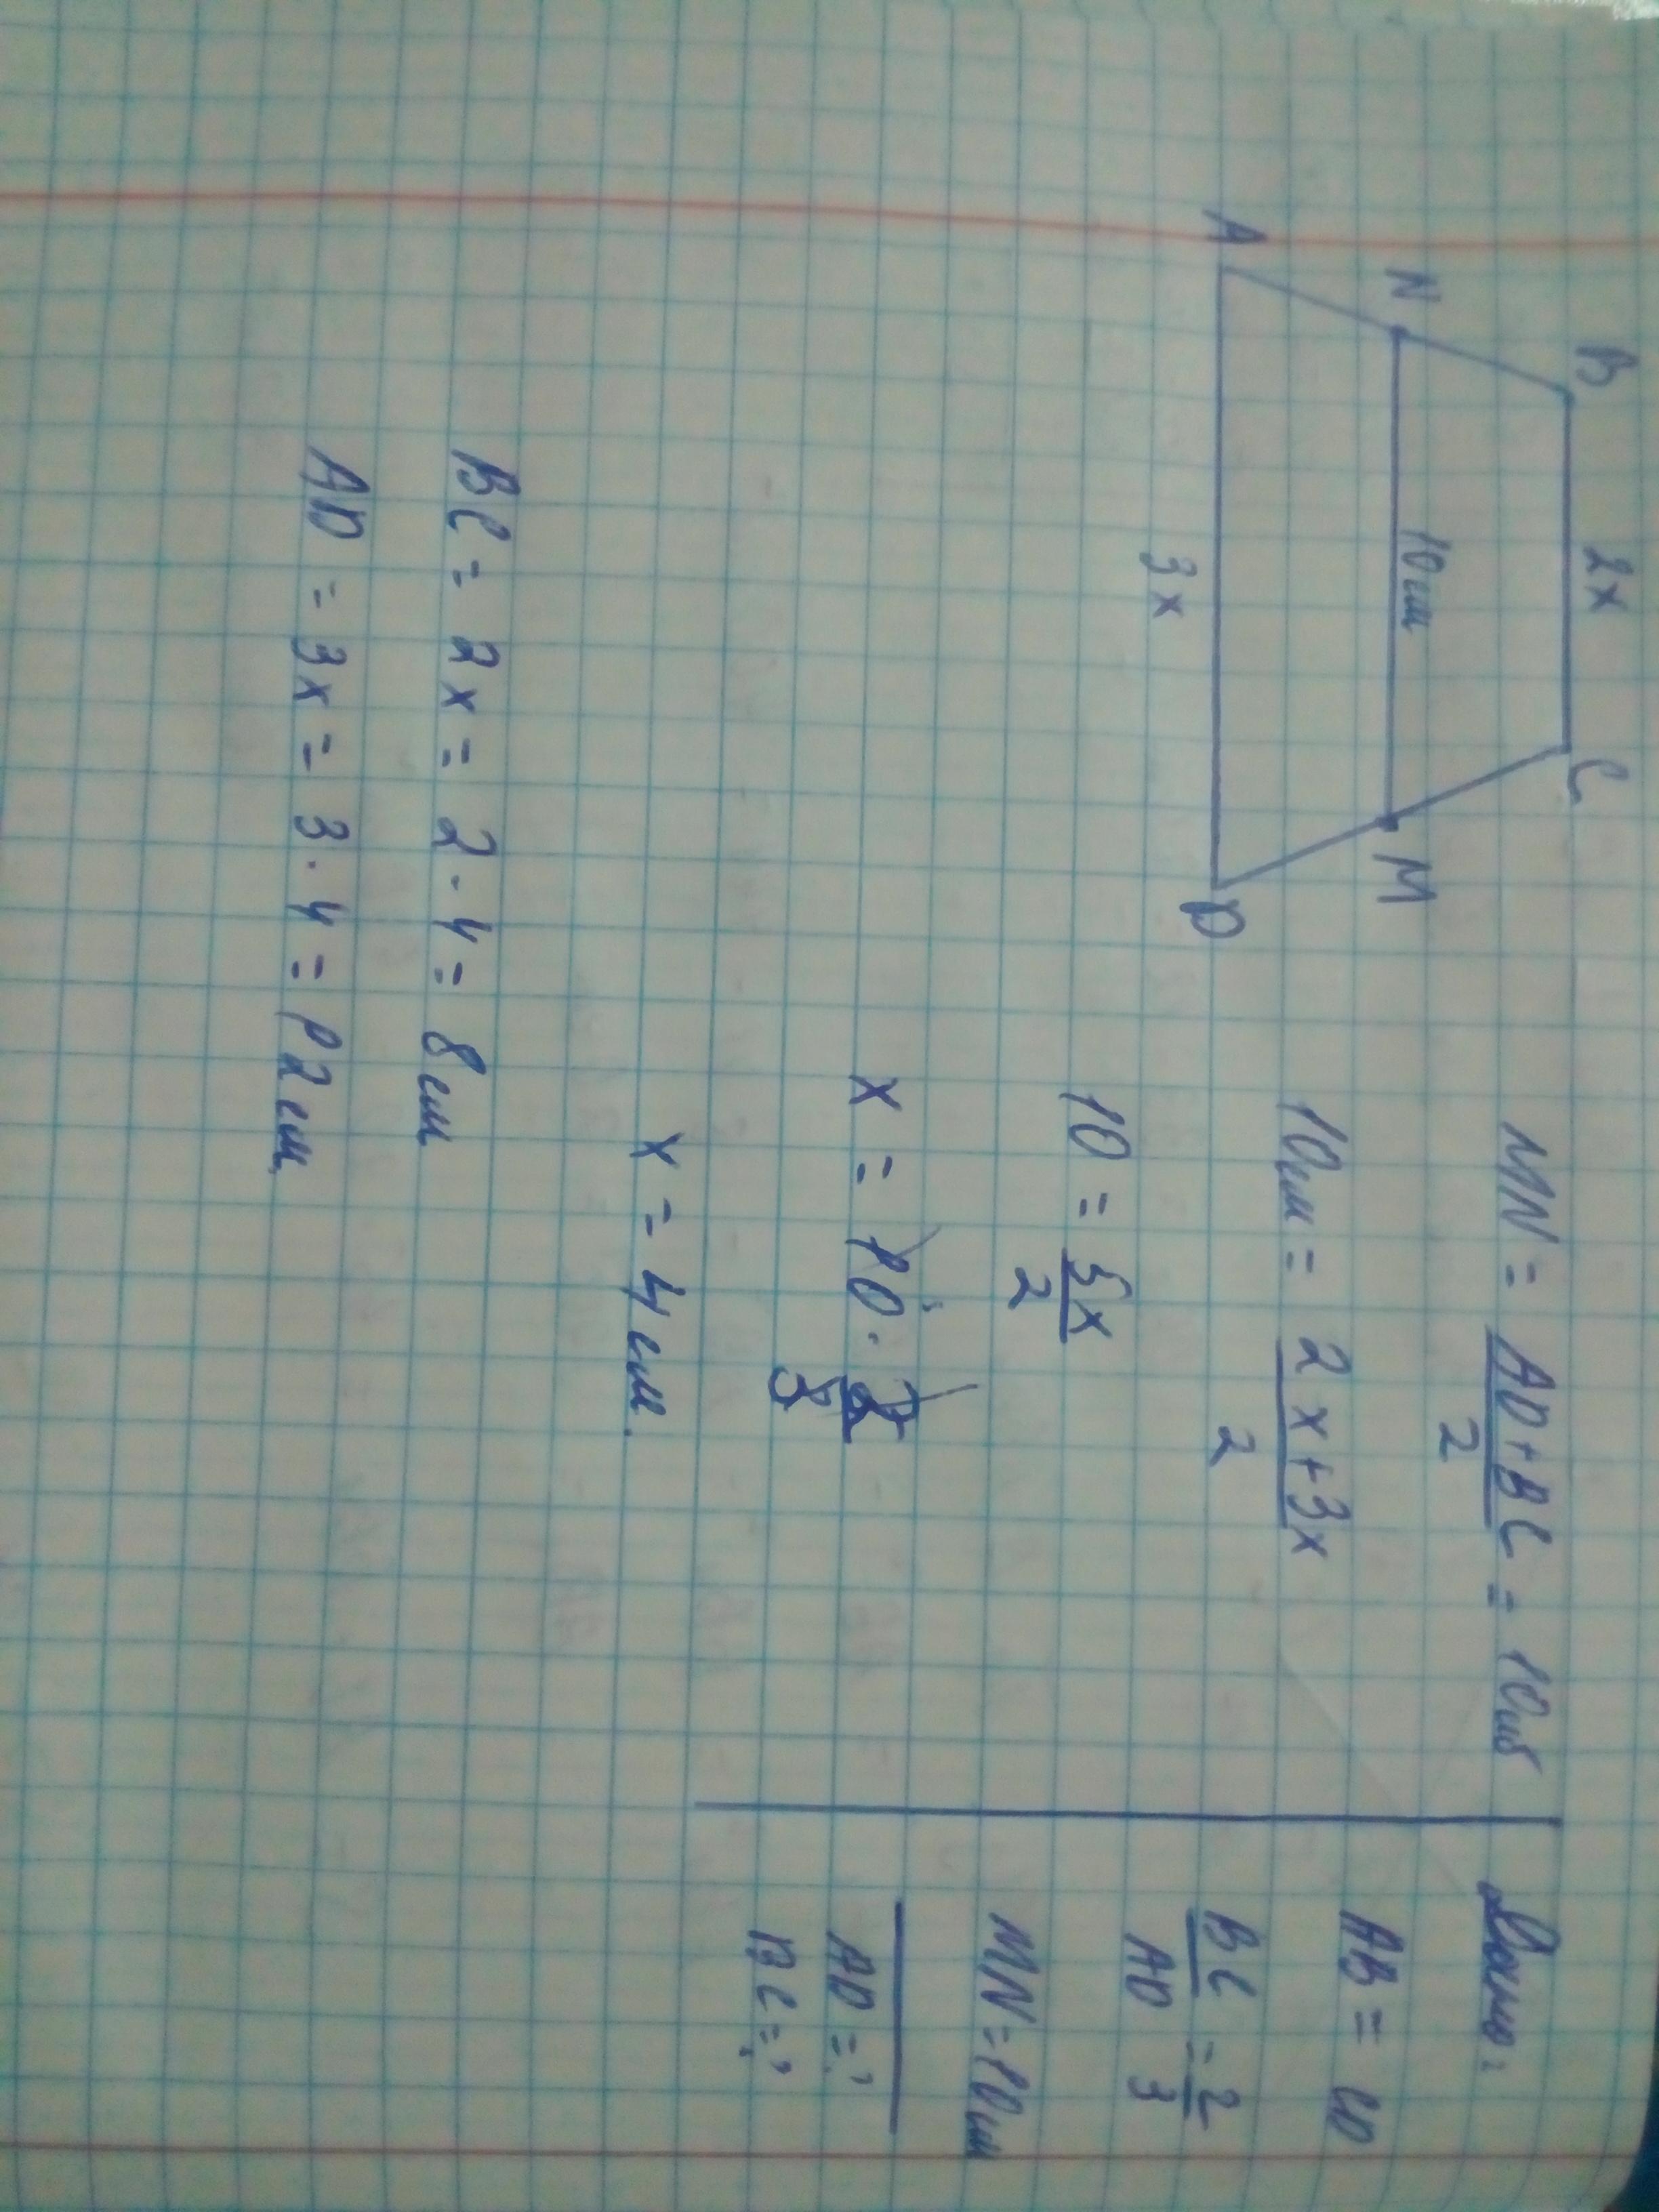 B 2x C
N 10см M
A 3x D
MN = AD+BC/2 = 10см
10см = 2x+3x/2
10 = 5x/2
x = 10 · 2/5
x = 4см.
BC = 2x = 2 · 4 = 8см
AD = 3x = 3 · 4 = 12см
Дано:
AB = CD
BC/AD = 2/3
MN = 10см
AD = ?
BC = ?